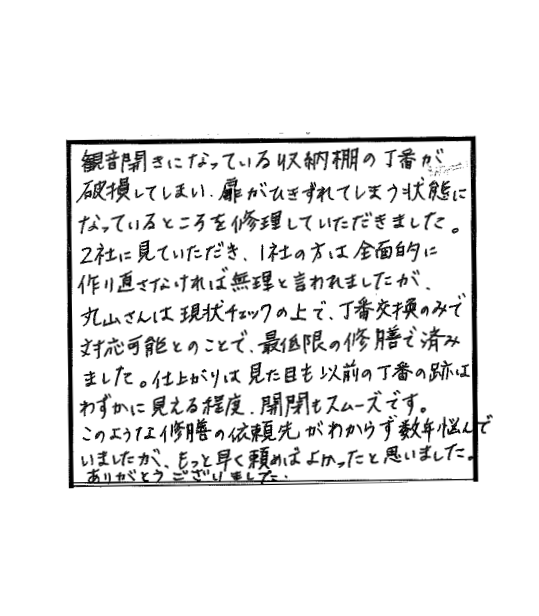 観音開きになっている収納棚の丁番が
破損してしまい、扉がひきずれてしまう状態に
なっているところを修理していただきました。
2社に見ていただき、1社の方は全面的に
作り直さなければ無理と言われましたが、
丸山さんは現状チェックの上で、丁番交換のみで
対応可能とのことで、最低限の修膳で済み
ました。仕上がりは見た目も以前の丁番の跡は
わずかに見える程度、開閉もスムーズです。
このような修膳の依頼先がわからず数年悩んで
いましたが、もっと早く頼めばよかったと思いました。
ありがとうございました。